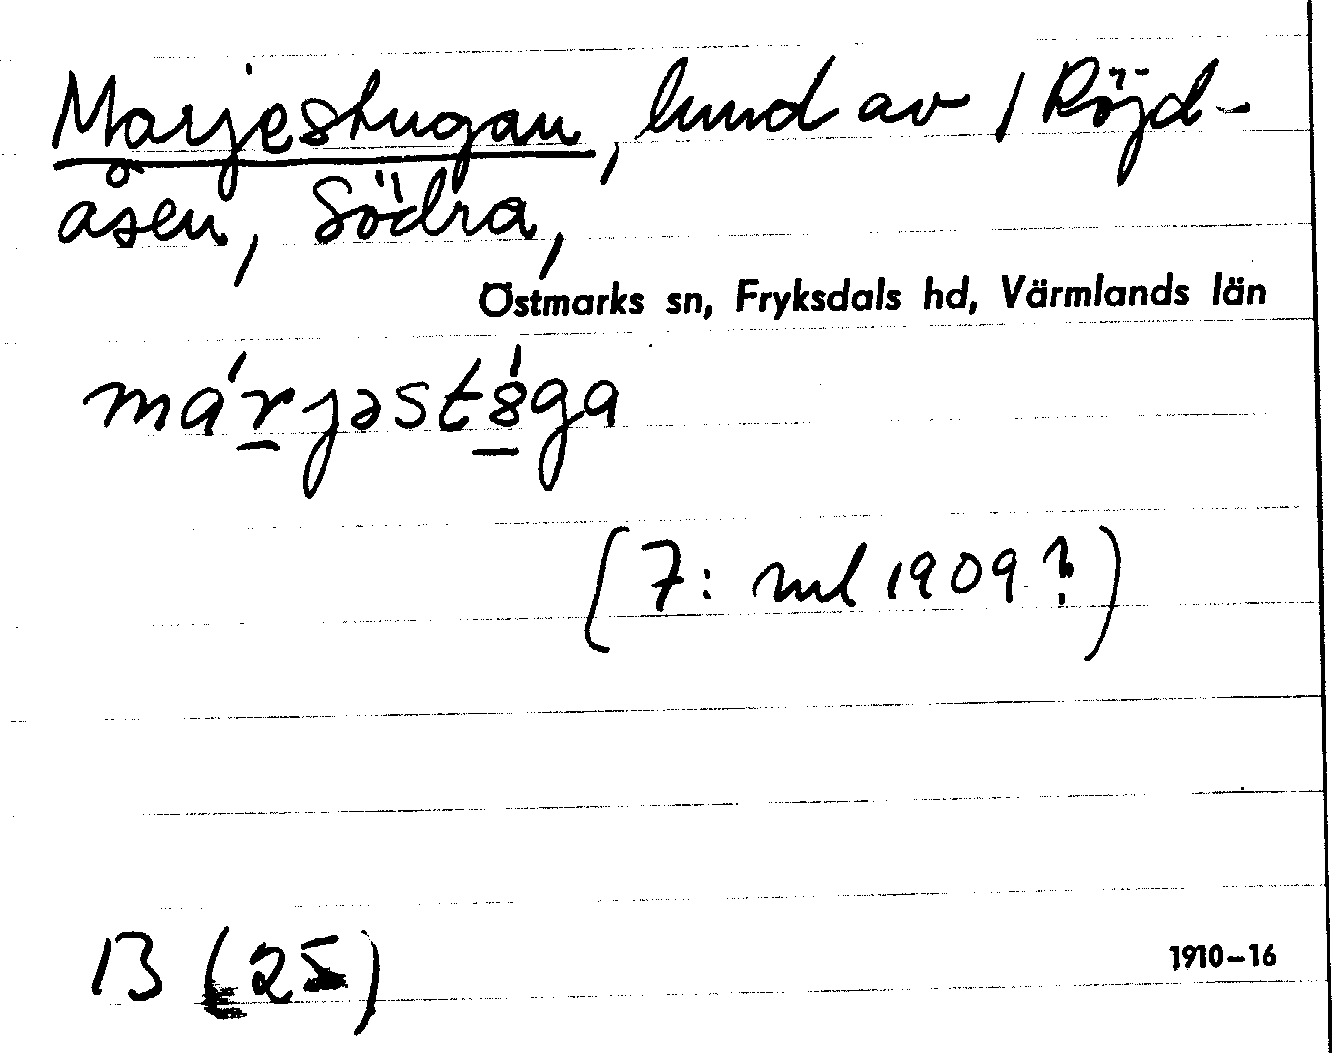 Marjestugan, lund av 1 Röjd-
åsen, Södra,
Östmarks sn, Fryksdals hd, Värmlands län
márjəst8́ga
(7: ml 1909?)
B (25)
1910–16